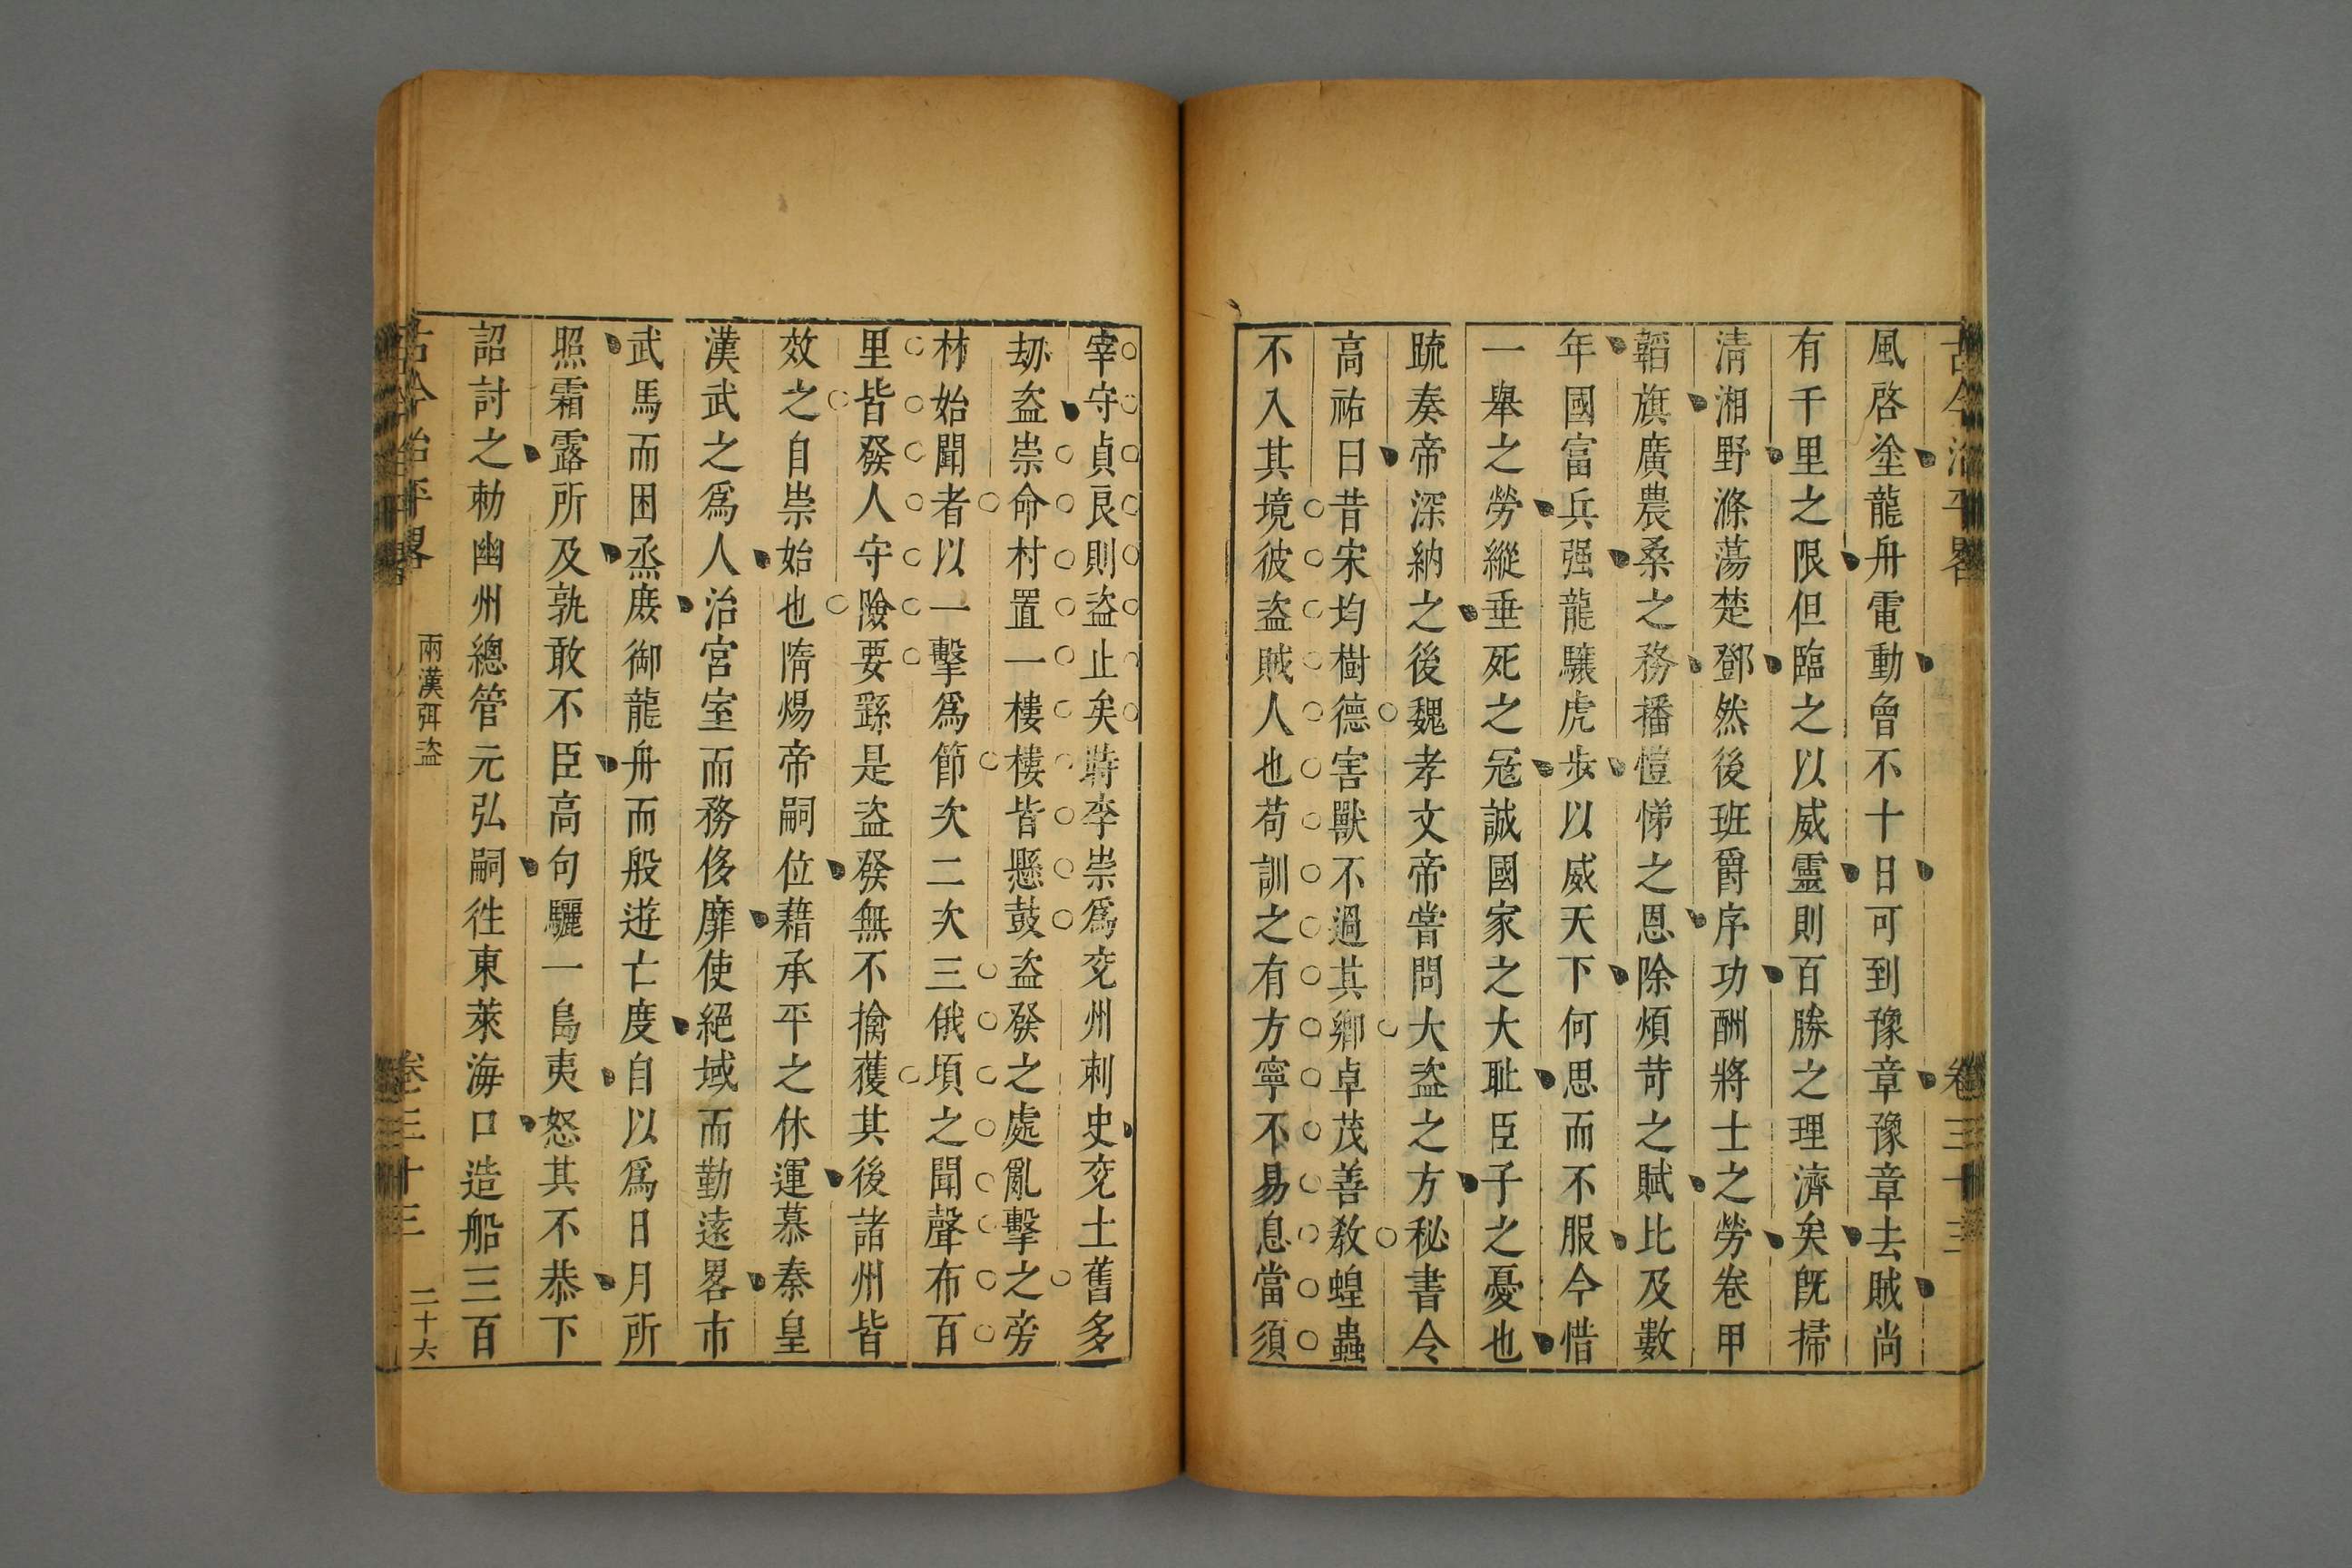 古今治平畧
卷三十三
風啓塗龍舟電動曾不十日可到豫章豫章去賊尚
有千里之限但臨之以威靈則百勝之理濟矣旣掃
清湘野滌蕩楚鄧然後班爵序功酬將士之勞卷甲
韜旗廣農桑之務播愷悌之恩除煩苛之賦比及數
年國富兵强龍驤虎步以威天下何思而不服今惜
一舉之勞縱垂死之寇誠國家之大耻臣子之憂也
䟽奏帝深納之後魏孝文帝嘗問大盗之方秘書令
高祐曰昔宋均樹德害獸不過其鄉卓茂善敎蝗蟲
不入其境彼盗賊人也苟訓之有方寧不易息當須
宰守貞良則盗止矣時李崇爲兖州刺史兖土舊多
刼盗崇命村置一樓樓皆懸鼓盗發之處亂擊之旁
村始聞者以一擊爲節次二次三俄頃之聞聲布百
里皆發人守險要繇是盗發無不擒獲其後諸州皆
效之自崇始也隋煬帝嗣位藉承平之休運慕秦皇
漢武之爲人治宮室而務侈靡使絕域而勤遠畧市
武馬而困烝庶御龍舟而般遊亡度自以爲日月所
照霜露所及孰敢不臣高句驪一島夷怒其不恭下
詔討之勑幽州總管元弘嗣徃東萊海口造船三百
古今治平畧
兩漢弭盗
卷三十三
二十六